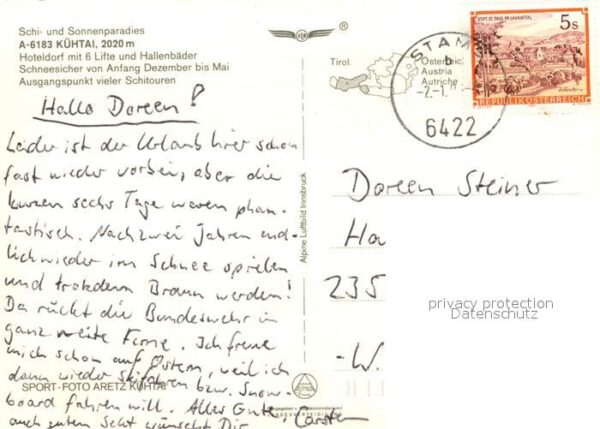 Schi- und Sonnenparadies
A-6183 KÜHTAI, 2020 m
Hoteldorf mit 6 Lifte und Hallenbäder
Schneesicher von Anfang Dezember bis Mai
Ausgangspunkt vieler Schitouren
Hallo Doreen!
Leider ist der Urlaub hier schon
fast wieder vorbei, aber die
kurzen sechs Tage waren phan-
tastisch. Nach zwei Jahren end-
lich wieder im Schnee spielen
und trotzdem Braun werden!
Da rückt die Bundeswehr in
ganz weite Ferne. Ich freue
mich schon auf Ostern, weil ich
dann wieder Skifahren bzw. Snow-
board fahren will. Alles Gute,
auch guten Setzt wünscht Dir Carsten
SPORT-FOTO ARETZ KÜHTAI
Alpine Luftbild Innsbruck
ALPINE
Tirol
Österreich
Austria
Autriche
STAMS
b
-2.-1.
6422
STIFT ST. PAUL IM LAVANTTAL
5s
REPUBLIK ÖSTERREICH
Doreen Steiner
Ha
235
-W.
privacy protection
Datenschutz